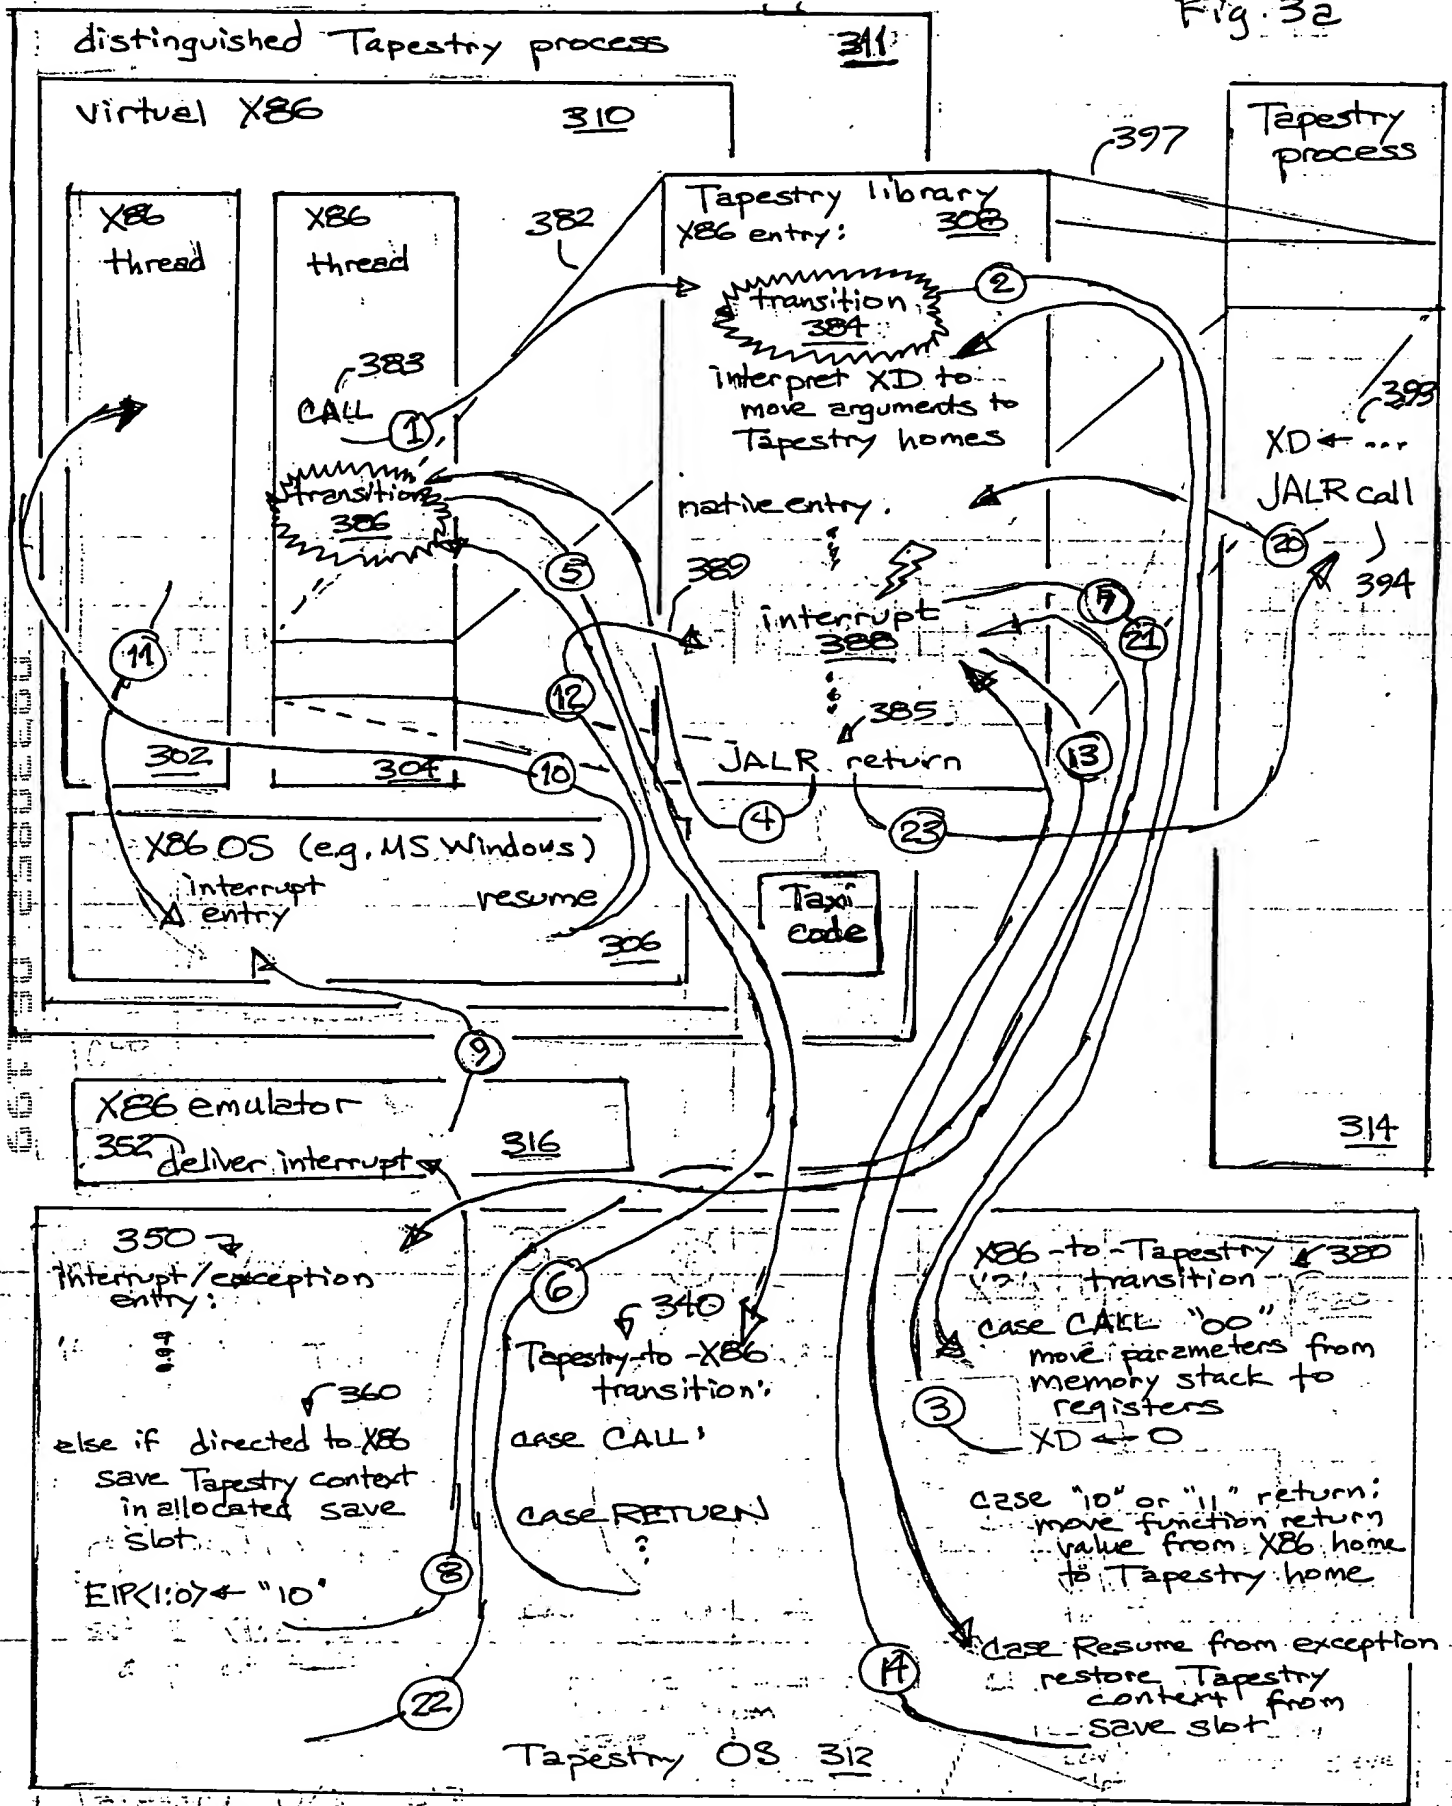 Fig. 3a
distinguished Tapestry process 311
virtual X86 310
X86
thread
302
X86
thread
383
CALL
1
transition
386
304
382
Tapestry library
308
X86 entry:
transition
384
2
interpret XD to
move arguments to
Tapestry homes
native entry.
389
interrupt
388
385
JALR return
397
Tapestry
process
399
XD ← ...
JALR call
20
394
314
5
7
21
11
12
10
13
4
23
X86 OS (e.g. MS Windows)
interrupt
entry
resume
306
Taxi
code
9
X86 emulator
352 deliver interrupt
316
350
interrupt/exception
entry:
360
else if directed to X86
save Tapestry context
in allocated save
slot
EIP<1:0> ← "10"
8
22
6
340
Tapestry-to-X86
transition:
case CALL:
case RETURN
X86-to-Tapestry 380
transition
case CALL "00"
move parameters from
memory stack to
registers
3
XD ← 0
case "10" or "11" return:
move function return
value from X86 home
to Tapestry home
case Resume from exception
restore Tapestry
context from
save slot
14
Tapestry OS 312